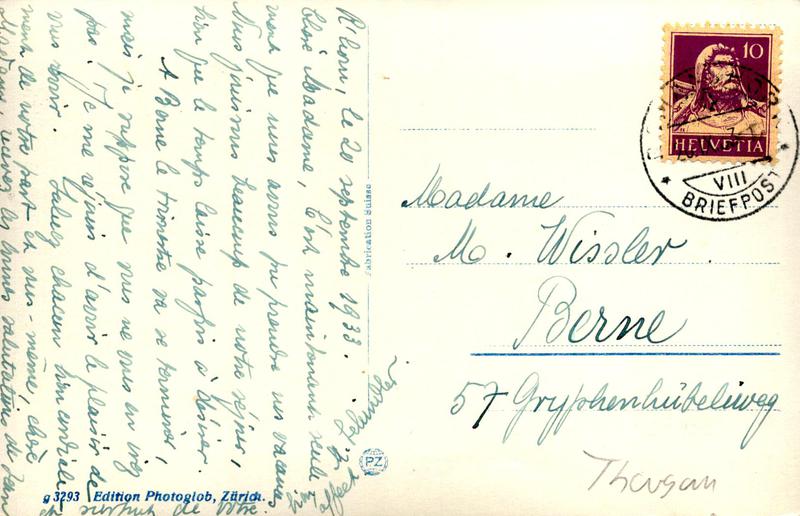 R'horn, le 20 septembre 1933.
Chère Madame, C'est maintenant seule-
ment que nous avons pu prendre nos vacances
Nous jouissons beaucoup de notre séjour,
bien que le temps laisse parfois à désirer.
A Berne le trimestre va se terminer,
mais je suppose que vous ne vous en irez
pas. Je me réjouis d'avoir le plaisir de
vous revoir. Saluez chacun bien cordiale-
ment de notre part et vous-même, chère
Madame, recevez les bonnes salutations de
et surtout de votre
bien affect.
Fabrication Suisse
PZ
g 3293 Edition Photoglob, Zürich.
10
HELVETIA
VIII
BRIEFPOST
Madame
M. Wissler
Berne
57 Gryphenhübeliweg
Thurgau